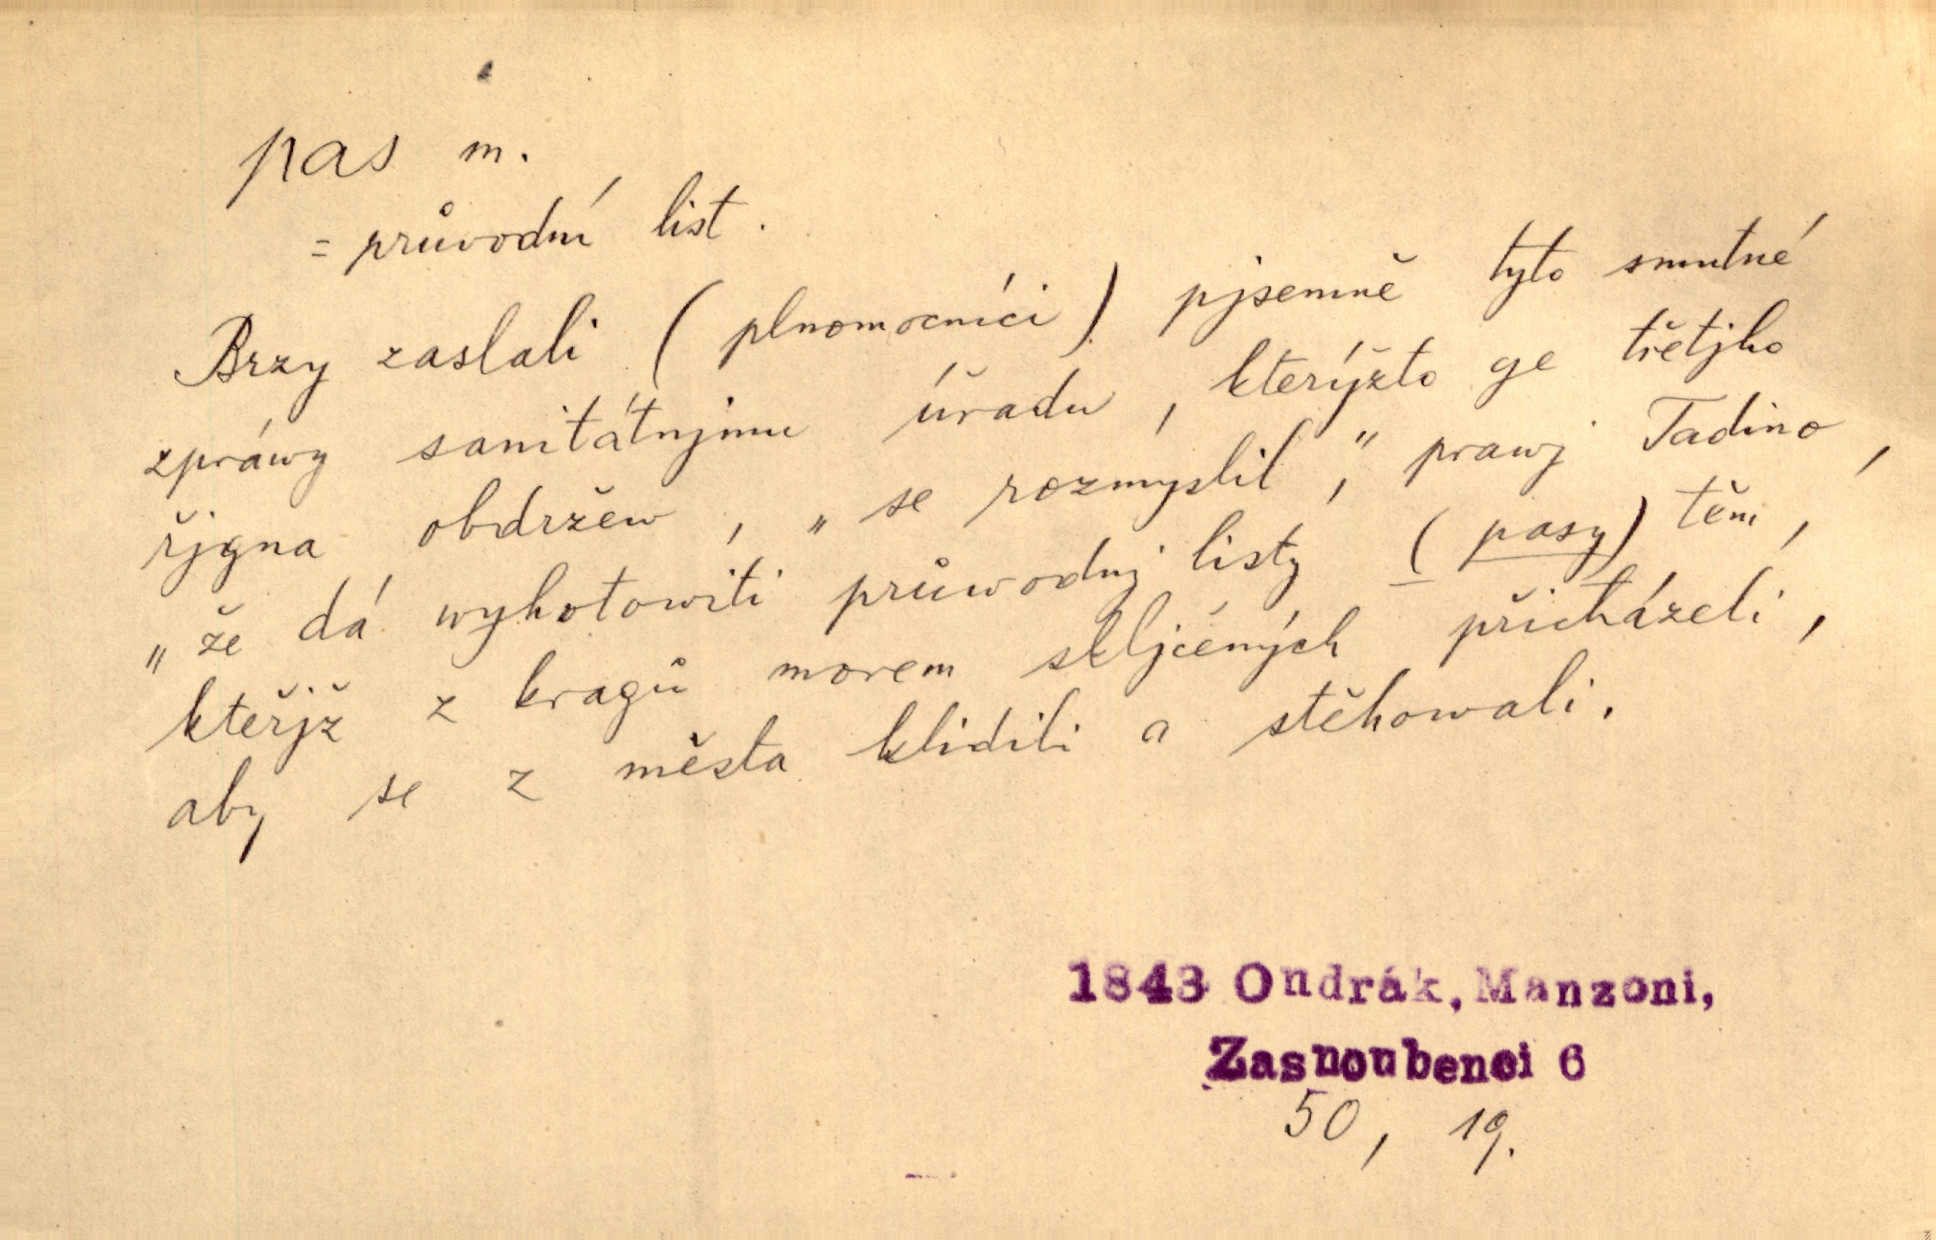 pas m.
= průvodní list.
Brzy zaslali (plnomocníci) pjsemně tyto smutné
zpráwy sanitátnjmu úřadu, kterýžto ge třetjho
řjgna obdržew, „se rozmyslil,“ prawj Tadino,
„že dá wyhotowiti průwodnj listy (pasy) těm,
kteřjž z kragů morem skljčěných přicházeli,
aby se z města klidili a stěhowali.
1843 Ondrák, Manzoni,
Zasnoubenci 6
50, 19.